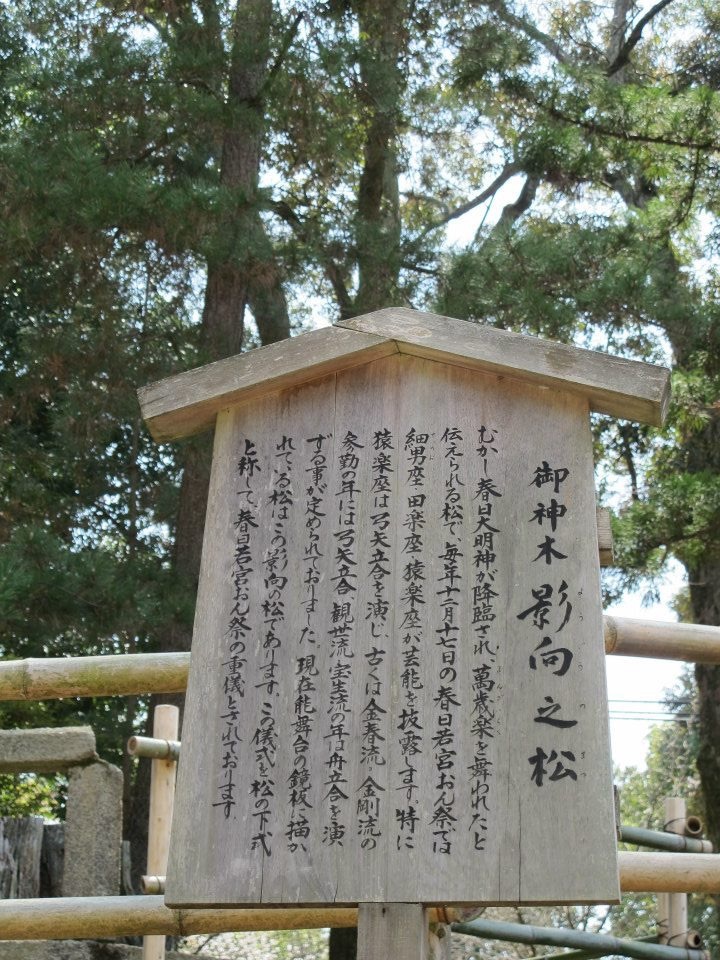 御神木 影向之松
ようごうのまつ
むかし春日大明神が降臨され、萬歳楽を舞われたと
まんざいらく
伝えられる松で、毎年十二月十七日の春日若宮おん祭では
細男座・田楽座・猿楽座が芸能を披露します。特に
猿楽座は弓矢立合を演じ、古くは金春流・金剛流の
参勤の年には弓矢立合、観世流・宝生流の年は舟立合を演
ずる事が定められておりました。現在能舞台の鏡板に描か
れている松はこの影向の松であります。この儀式を松の下式
と称して、春日若宮おん祭の重儀とされております。